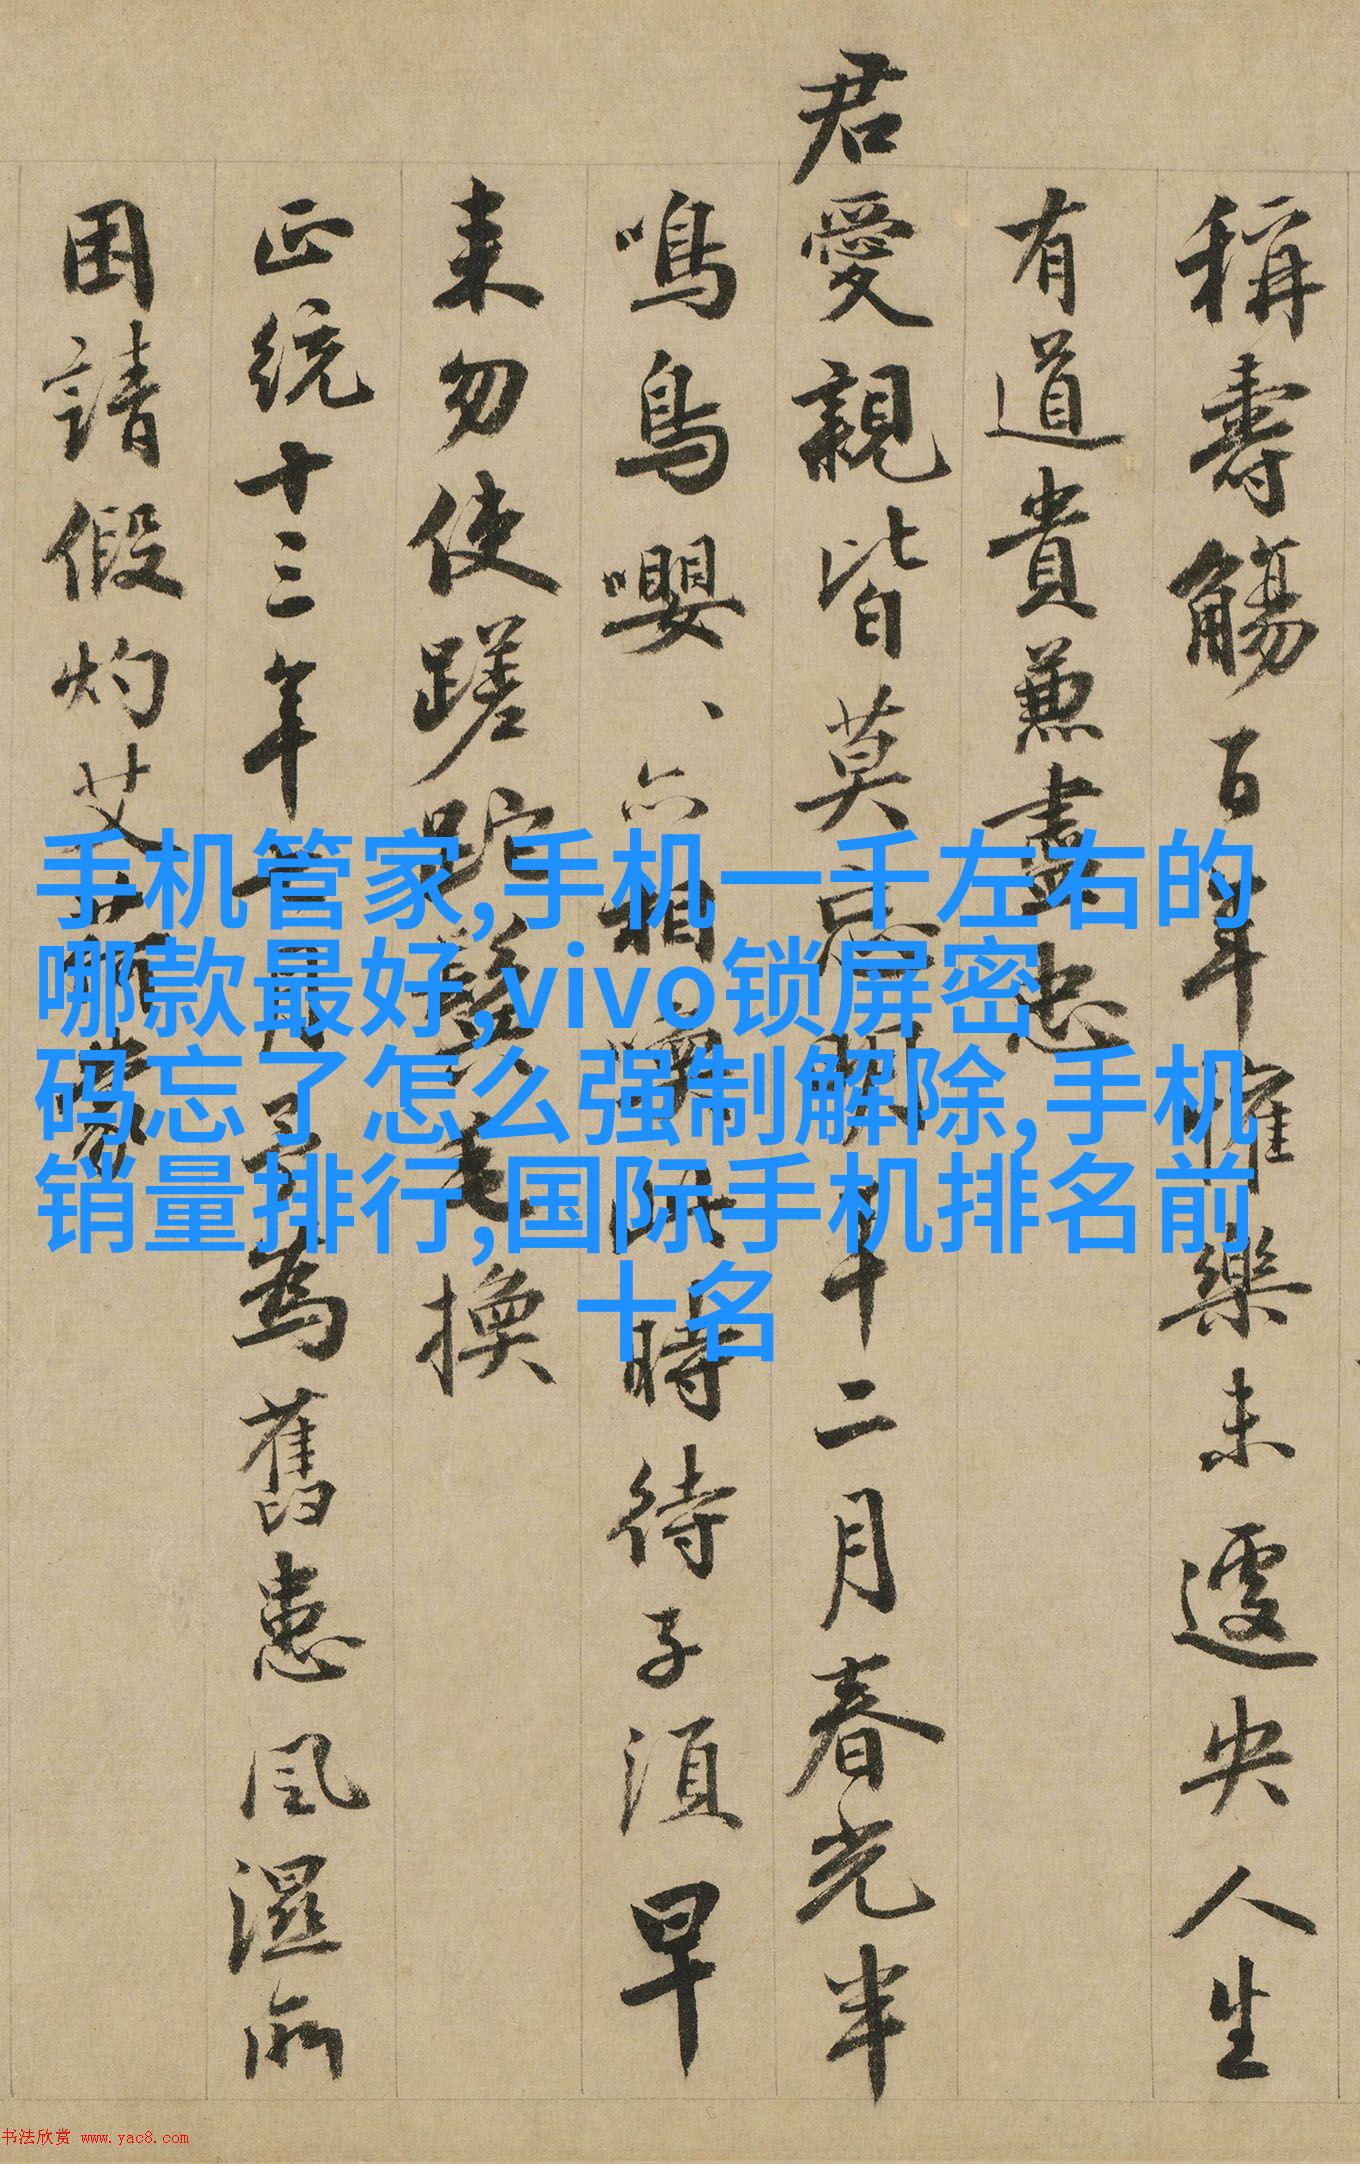 稱壽觴百年惟樂未遽央人生
有道貴兼盡忠
君愛親皆莫忘明年二月春光半
鳴鳥嚶、亦相喚此時待子須早
来勿使蹉跎鬢毛換
正統十三年月予為舊患風濕所
困請假灼艾
手机管家,手机一千左右的
哪款最好,vivo锁屏密
码忘了怎么强制解除,手机
销量排行,国际手机排名前
十名
书法欣赏 www.yac8.com